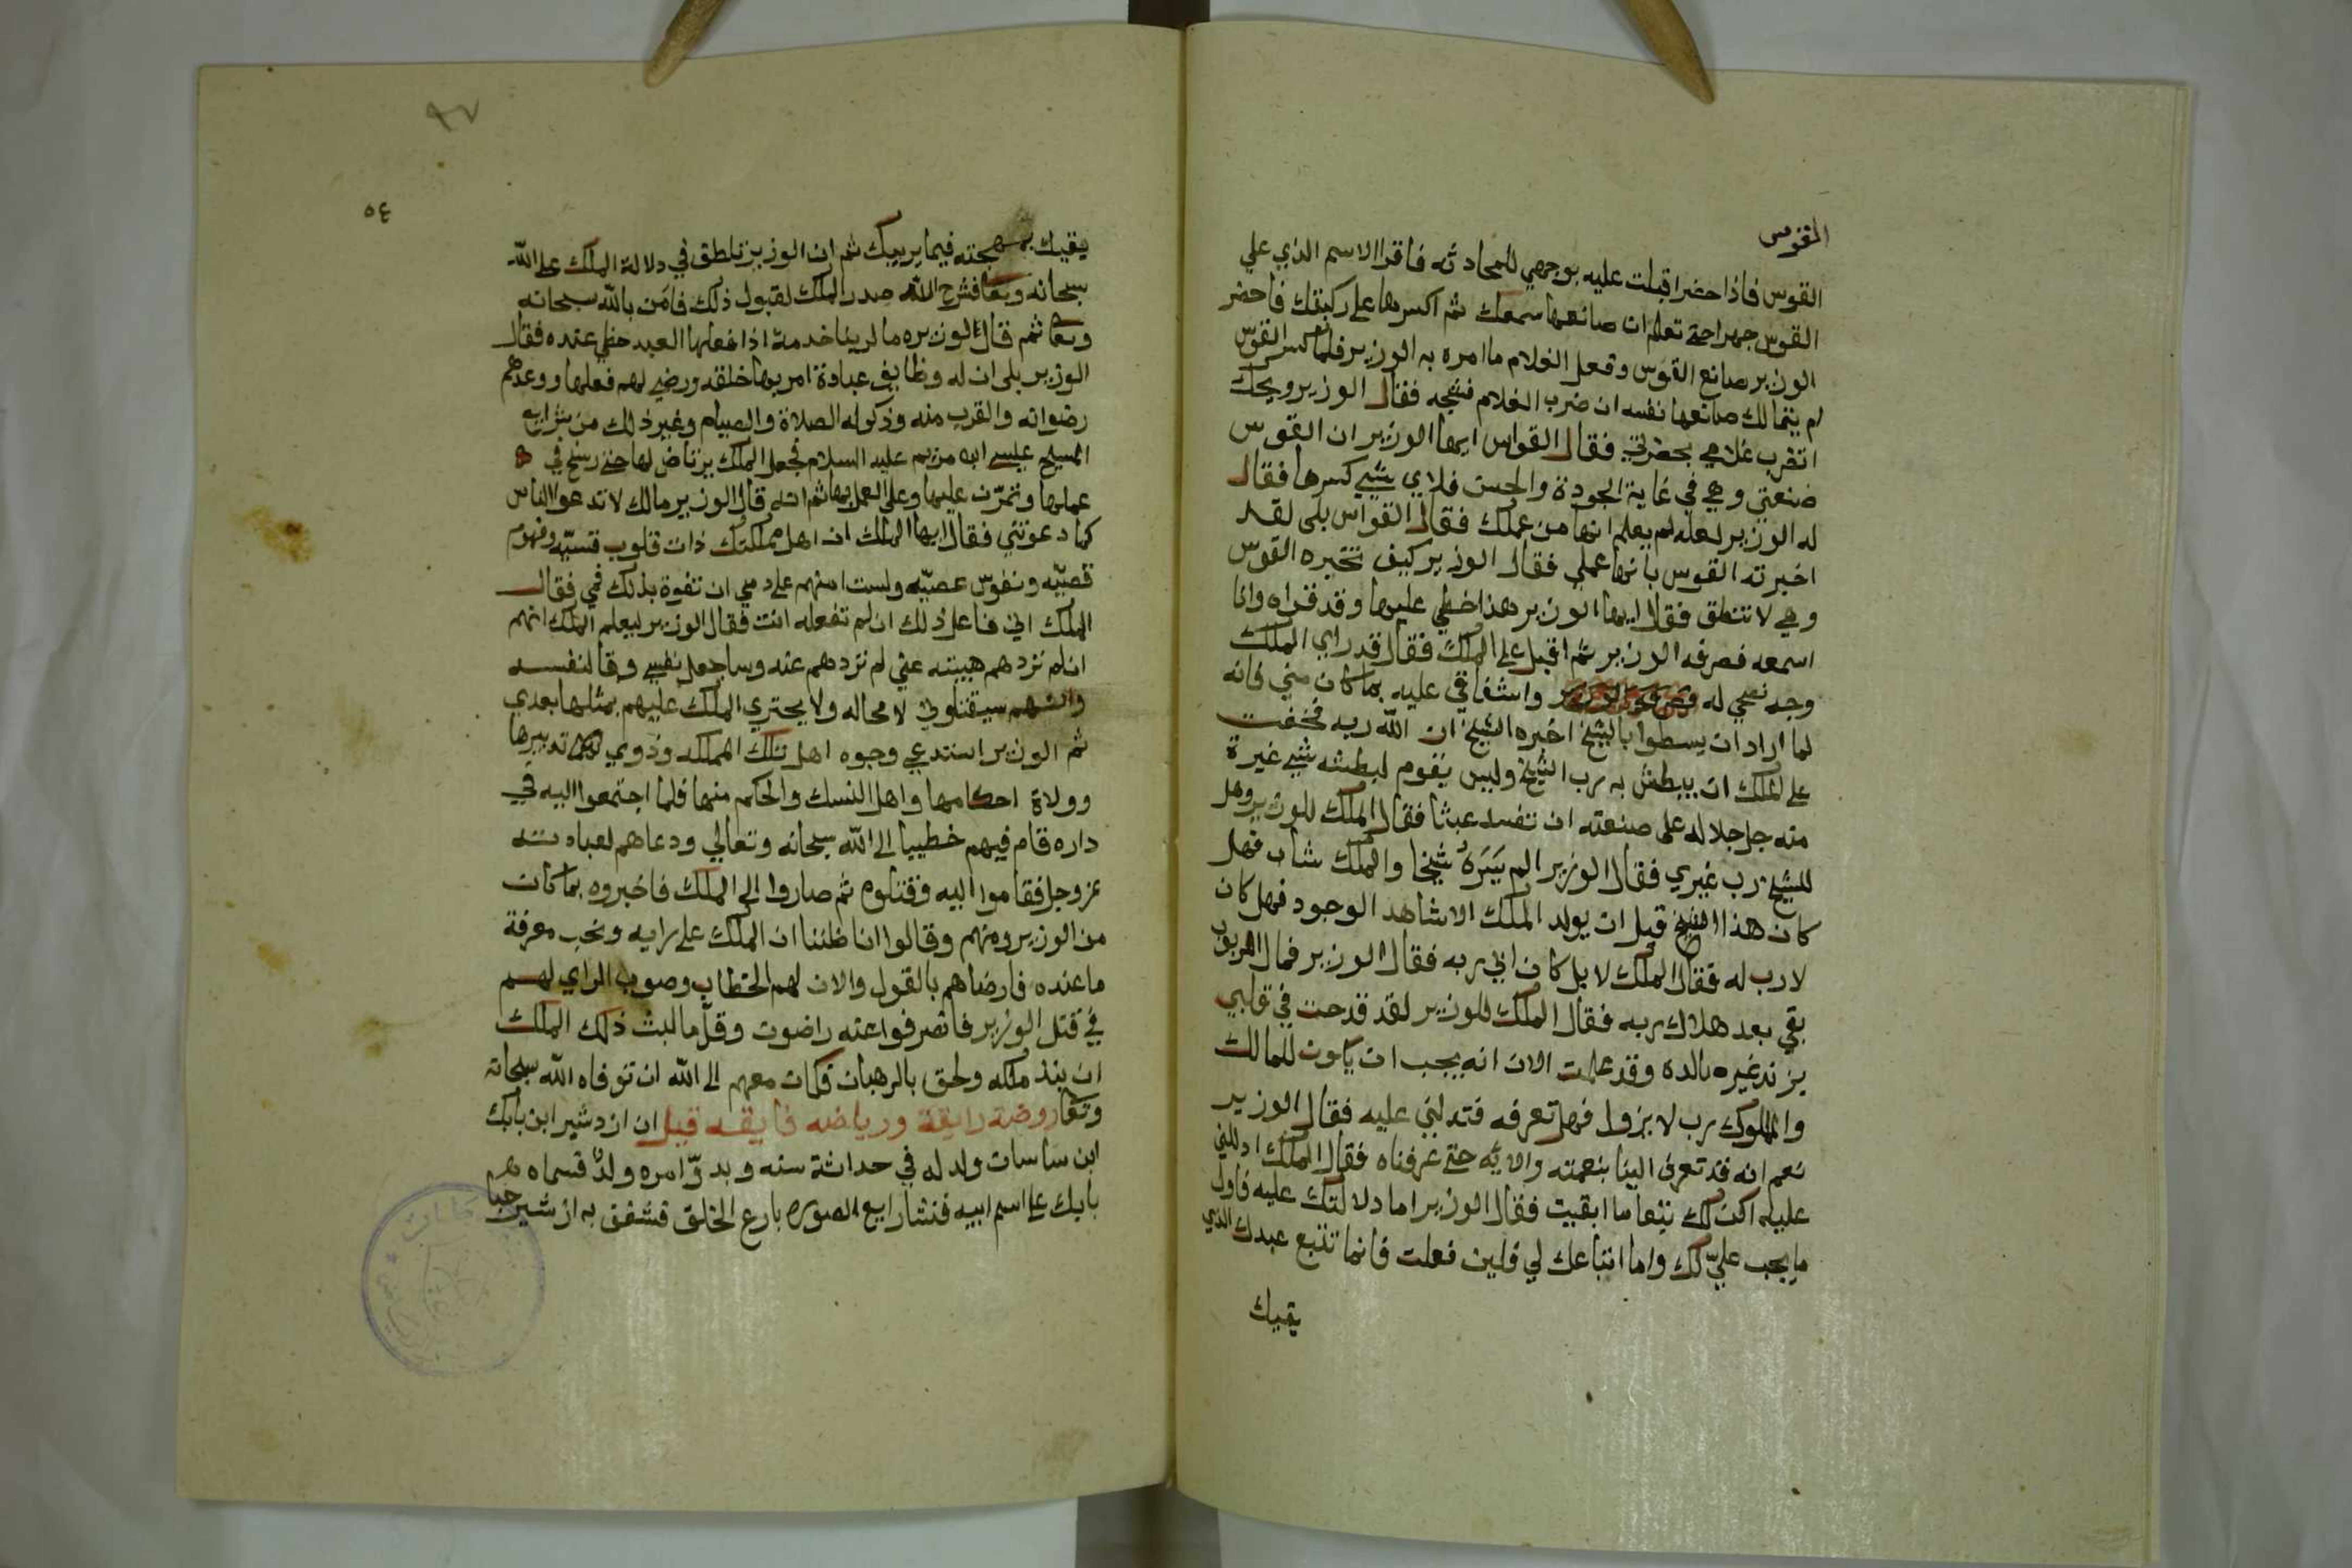 القوس
القوس فاذا حضر اقبلت عليه بوجهي للمحادثه فاقرا الاسم الذي علي
القوس جهرا حتى تعلم ان صانعها سمعك ثم اكسرها على ركبتك فاحضر
الوزير صانع القوس وفعل الغلام ما امره به الوزير فلما كسر القوس
لم يتمالك صانعها نفسه ان ضرب الغلام فشجه فقال الوزير ويحك
اتضرب غلامي بحضرتي فقال القواس ايها الوزير ان القوس
صنعتي وهي في غاية الجودة والحسن فلاي شي كسرها فقال
له الوزير لعله لم يعلم انها من عملك فقال القواس بلى لقد
اخبرته القوس بانها عملي فقال الوزير كيف تخبره القوس
وهي لا تنطق فقال ايها الوزير هذا خطي عليها وقد قراه وانا
اسمعه فصرفه الوزير ثم اقبل على الملك فقال قد راي الملك
وجه نصحي له واشفاقي عليه بما كان مني فانه
لما اراد ان يسطوا بالشيخ اخبره الشيخ ان الله ربه فخفت
على الملك ان يبطش به رب الشيخ وليس يقوم لبطشه شي غيرة
منه جل جلاله على صنعته ان تفسد عبثا فقال الملك للوزير وهل
للشيخ رب غيري فقال الوزير الم يَرَهُ شيخا والملك شاب فهل
كان هذا الشيخ قبل ان يولد الملك الا شاهد الوجود فهل كان
لا رب له فقال الملك لا بل كان ابي ربه فقال الوزير فما المربوب
بقي بعد هلاك ربه فقال الملك للوزير لقد قدحت في قلبي
وقد علمت الان انه يجب ان يكون للمالك
والمملوك رب لا يزول فهل تعرفه فتدلني عليه فقال الوزير
نعم انه قد تعرف الينا بنعمته والايه حتى عرفناه فقال الملك ادللني
عليه اكن لك تبعا ما ابقيت فقال الوزير اما دلالتك عليه فاول
ما يجب عليّ لك واما اتباعك لي فلين فعلت فانما تتبع عبدك الذي
يقيك
٩٧
٥٤
يقيك بمهجته فيما يريبك ثم ان الوزير تلطق في دلالة الملك على الله
سبحانه وتعا فشرح الله صدر الملك لقبول ذلك فامن بالله سبحانه
وتعا ثم قال للوزيره ما لربنا خدمة اذا فعلها العبد حظي عنده فقال
الوزير بلى ان له وظايف عبادة امر بها خلقه ورضي لهم فعلها ووعدهم
رضوانه والقرب منه وذكر له الصلاة والصيام وغير ذلك من شرايع
المسيح عيسى ابن مريم عليه السلام فجعل الملك يرتاض لها حتى رسخ في
عملها وتمرّن عليها وعلى العمل بها ثم انه قال للوزير مالك لا تدعو الناس
كما دعوتني فقال ايها الملك ان اهل مملكتك ذات قلوب قسيّه وفهوم
قصيّه ونفوس عصيّه ولست امنهم على دمي ان تفوة بذلك في فقال
الملك اني فاعل ذلك ان لم تفعله انت فقال الوزير ليعلم الملك انهم
ان لم تردهم هيبته عني لم تردهم عنه وساجعل نفسي وقا لنفسه
وانهم سيقتلوني لا محاله ولا يجتري الملك عليهم بمثلها بعدي
ثم الوزير استدعي وجوه اهل تلك المملكه وذوي تدبيرها
وولاة احكامها واهل النسك والحكم منها فلما اجتمعوا اليه في
داره قام فيهم خطيبا الى الله سبحانه وتعالي ودعاهم لعبادته
عز وجل فقاموا اليه وقتلوه ثم صاروا الى الملك فاخبروه بما كان
من الوزير ومنهم وقالوا انا ظننا ان الملك على رايه ونحب معرفة
ما عنده فارضاهم بالقول والان لهم الخطاب وصوب الراي لهم
في قتل الوزير فانصرفوا عنه راضون وقل ما لبث ذلك الملك
ان نبذ ملكه ولحق بالرهبان فكان معهم الى الله ان توفاه الله سبحانه
وتعا روضة رايقة ورياضه فايقه قيل ان ازدشير ابن بابك
ابن ساسان ولد له في حداثة سنه وبدوّ امره ولدٌ فسماه
بابك على اسم ابيه فنشا رايع الصوره بارع الخلق فشغف به ازدشير حبا